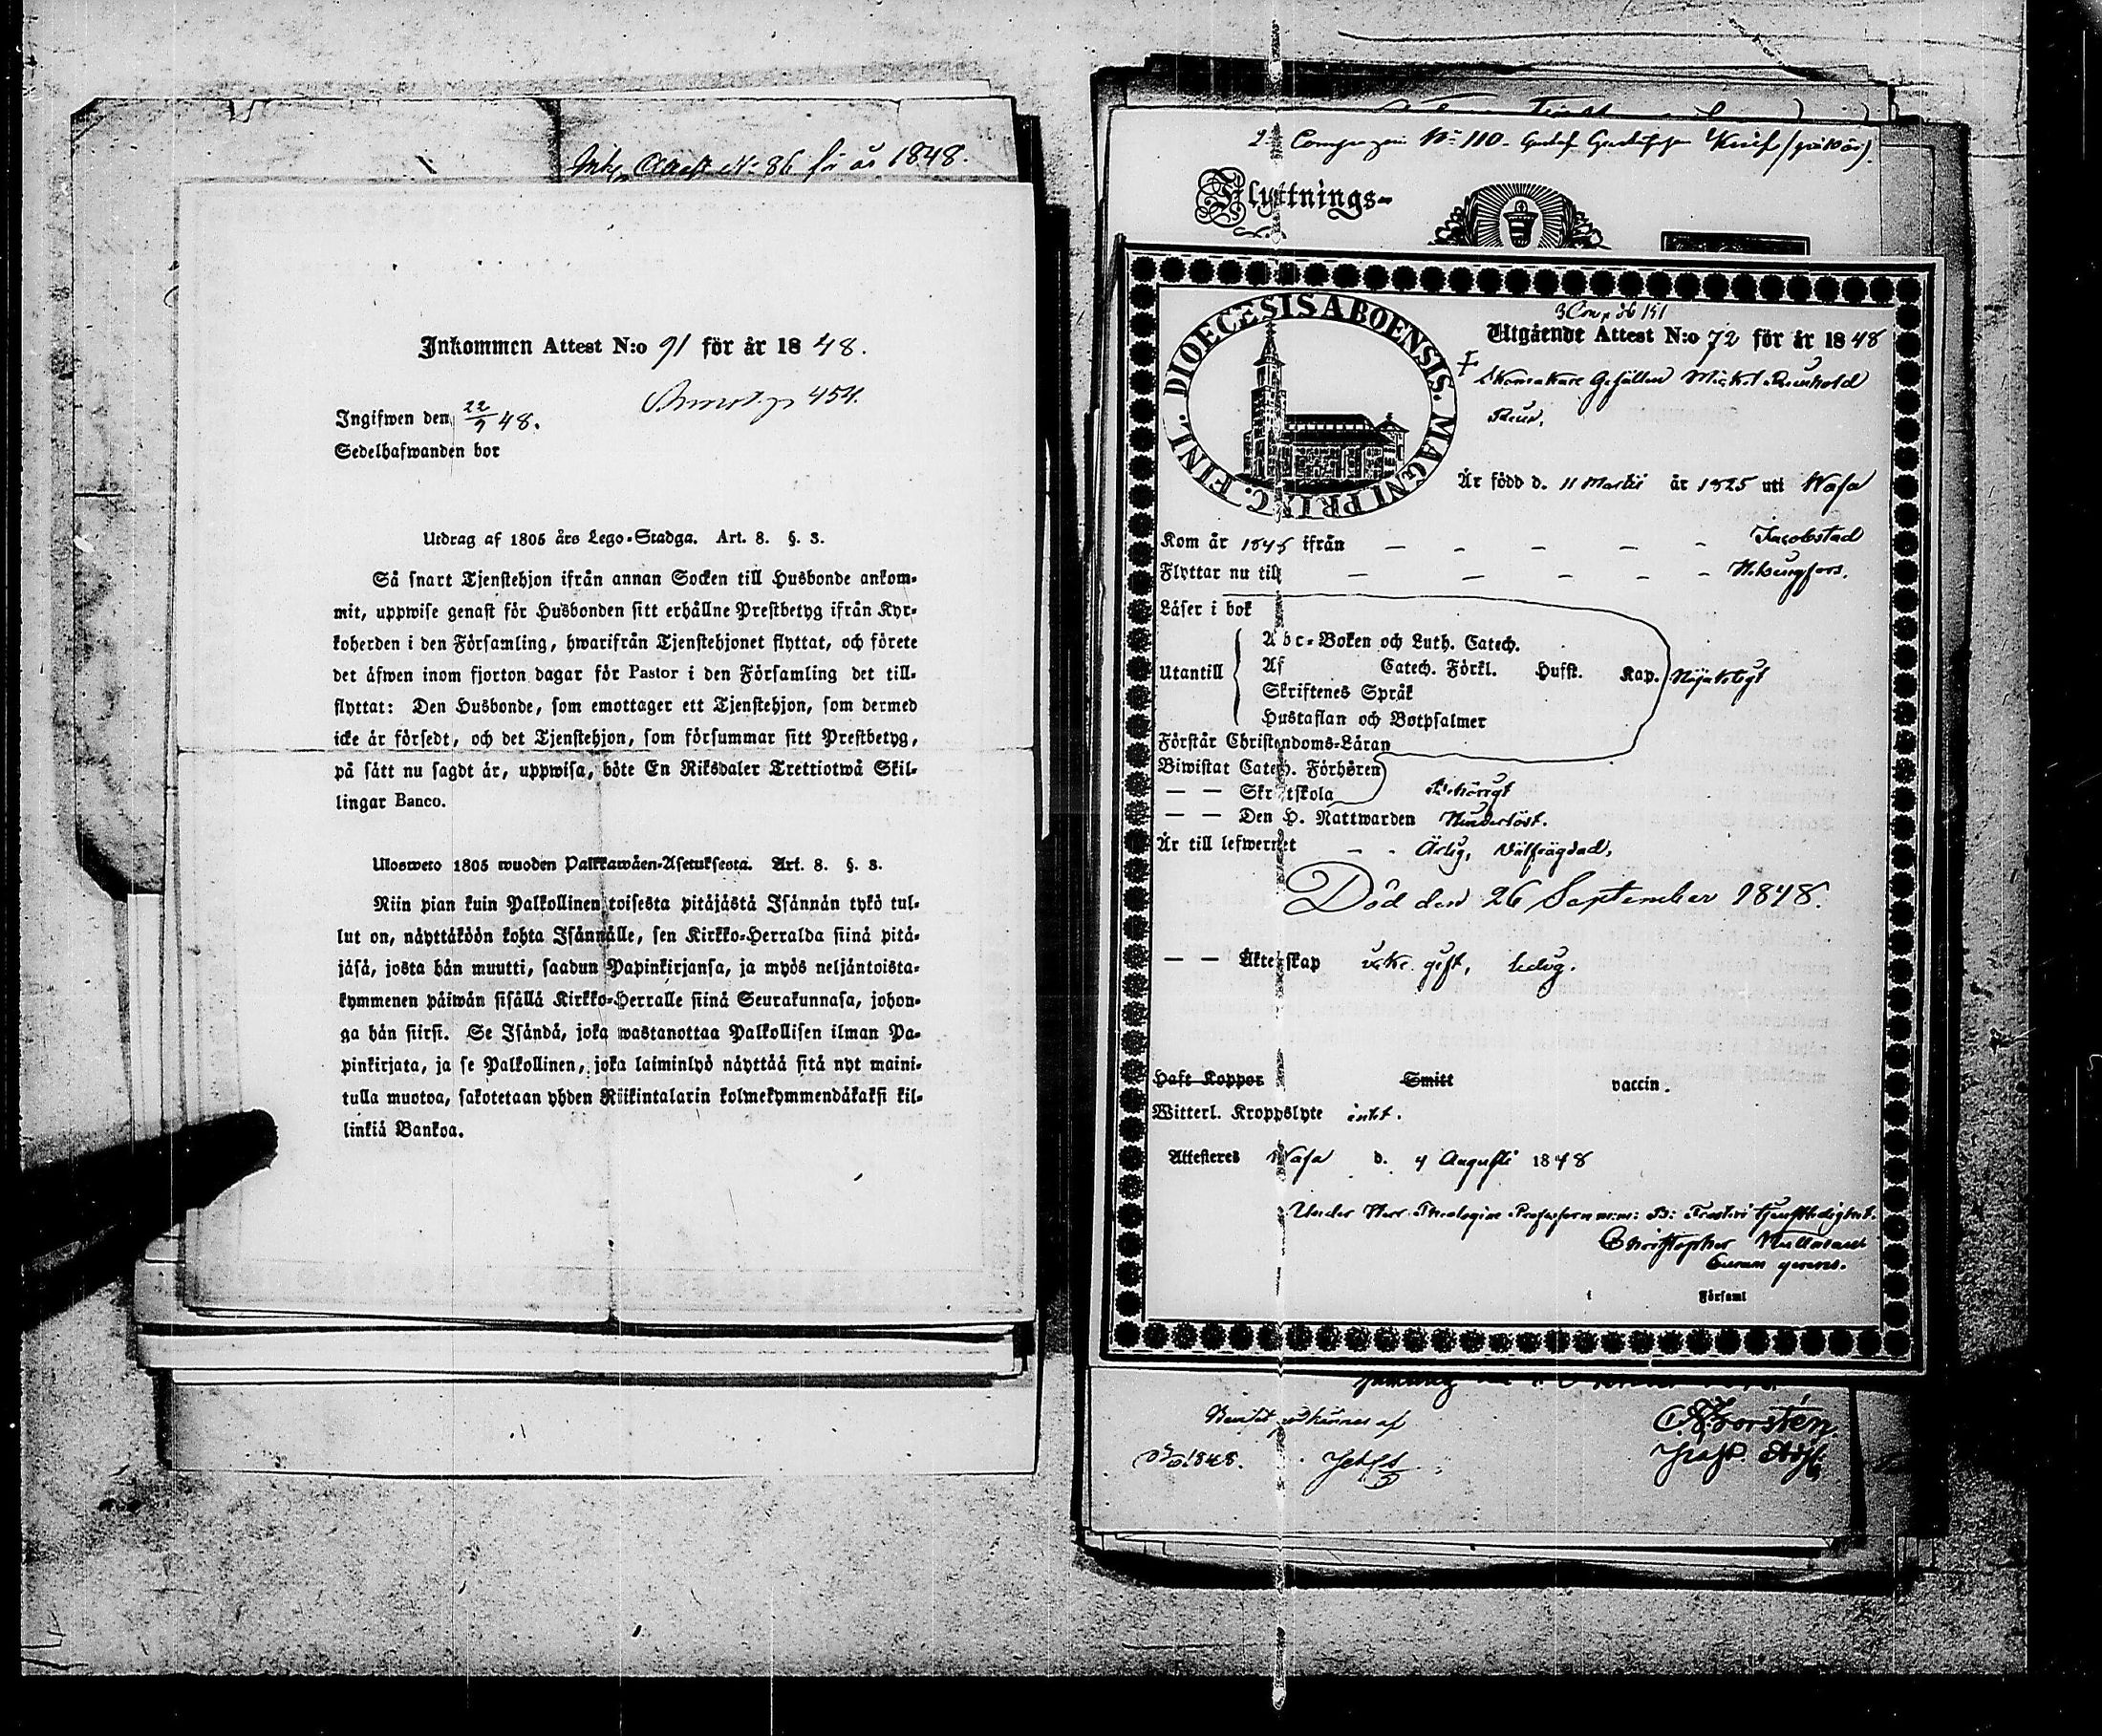 Attest No 86 för år 1848.
Inkommen Attest N:o 91 för år 1848.
454.
Ingifwen den 22/9 48.
Sedelhafwanden bor
Utdrag af 1805 års Lego-Stadga. Art. 8. §. 3.
Så snart Tjenstehjon ifrån annan Socken till Husbonde ankom-
mit, uppwise genast för Husbonden sitt erhållne Prestbetyg ifrån Kyr-
koherden i den Församling, hwarifrån Tjenstehjonet flyttat, och förete
det äfwen inom fjorton dagar för Pastor i den Församling det till-
flyttat: Den Husbonde, som emottager ett Tjenstehjon, som dermed
icke är försedt, och det Tjenstehjon, som försummar sitt Prestbetyg,
på sätt nu sagdt är, uppwisa, böte En Riksdaler Trettiotwå Skil-
lingar Banco.
Ulosweto 1805 wuoden Palkkawäen-Asetuksesta. Art. 8. §. 3.
Niin pian kuin Palkollinen toisesta pitäjästä Isännän tykö tul-
lut on, näyttäköön kohta Isännälle, sen Kirkko-Herralda siinä pitä-
jäsä, josta hän muutti, saadun Papinkirjansa, ja myös neljäntoista-
kymmenen päiwän sisällä Kirkko-Herralle siinä Seurakunnasa, johon-
ga hän siirsi. Se Isändä, joka wastanottaa Palkollisen ilman Pa-
pinkirjata, ja se Palkollinen, joka laiminlyö näyttää sitä nyt maini-
tulla muotoa, sakotetaan yhden Riikintalarin kolmekymmendäkaksi kil-
linkiä Bankoa.
2 Compagni No 110. Gustaf Gustafsson
Flyttnings-
DIOECESIS ABOENSIS. MAGNI PRINC. FINL.
3 Comp 151
Utgående Attest N:o 72 för år 1848
Skomakare Gesällen Michel Reinhold
Är född d. 11 Martii år 1825 uti Wasa
Kom år 1845 ifrån — — — — — Jacobstad
Flyttar nu till — — — — — H:lsingfors.
Läser i bok
Abc-Boken och Luth. Catech.
Utantill { Af Catech. Förkl. Husst. Kap. Nöjaktigt
Skriftenes Språk
Hustaflan och Botpsalmer
Förstår Christendoms-Läran
Biwistat Catech. Förhören
— — Skriftskola Behörigt
— — Den H. Nattwarden Hinderlöst.
Är till lefwernet - - Ärlig, Välfrägdad,
Död den 26 September 1848.
— — Äktenskap icke gift, ledig.
Haft Koppor Smitt vaccin.
Witterl. Kroppslyte intet.
Attesteres Wasa d. 4 Augusti 1848
Under Herr Theologiæ Professoren m:m: B: Frosteri tjenstledighet.
Christopher
Curam gerens.
Församl
af
1848.